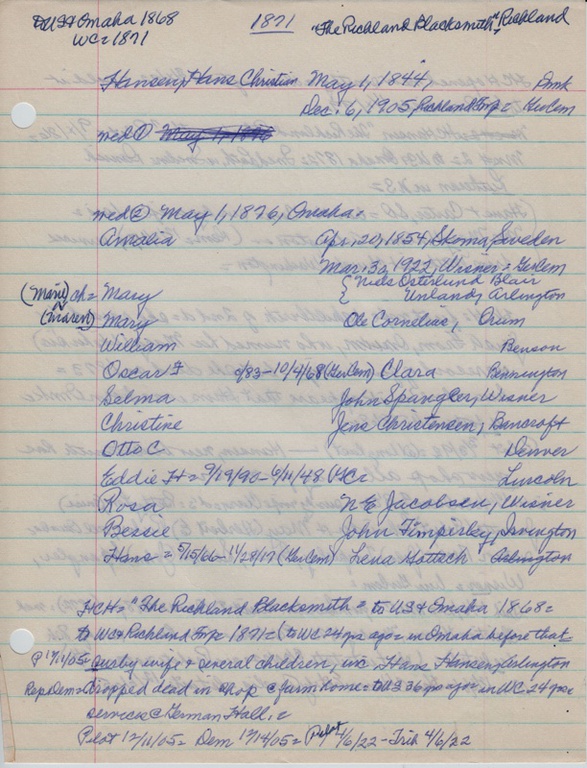 to US + Omaha 1868 1871 "The Richland Blacksmith", Richland
WC = 1871
Hansen, Hans Christian May 1, 1844, Dmk
Dec. 6, 1905, Richland Twp = GerCem
med ① May 1, 1876
med ② May 1, 1876, Omaha =
Amalia Apr. 20, 1854, Skoma, Sweden
Mar. 30, 1922, Wisner = GerCem
(Marie) ch = Mary { Niels Osterlund Blair
Unland, Arlington
(Maren) Mary Ole Cornelius, Orum
William Benson
Oscar F 0/83-10/4/68 (GerCem) Clara Bennington
Selma John Spangler, Wisner
Christine Jens Christensen, Bancroft
Otto C Denver
Eddie H = 9/19/90-6/11/48 (HC = Lincoln
Rosa N E Jacobsen, Wisner
Bessie John Timperley, Irvington
Hans = 5/15/66-11/28/17 (GerCem) Lena Gottsch Arlington
HCH = "The Richland Blacksmith = to US + Omaha 1868 =
to WC + Richland Twp 1871 = (to WC 24 yrs ago = in Omaha before that
P 12/11/05 = survby wife + several children, inc Hans Hansen, Arlington
Rep Dem = dropped dead in shop @ farm home = to US 36 yrs ago = in WC 24 yrs =
services @ German Hall, =
Pilot 12/11/05 = Dem 12/14/05 = Pilot 4/6/22 - Trib 4/6/22